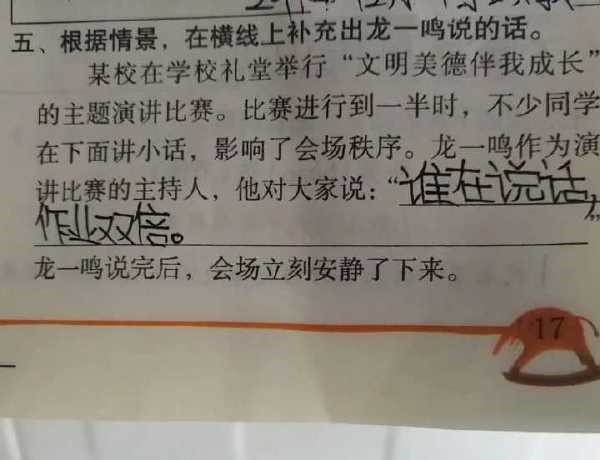 五、根据情景，在横线上补充出龙一鸣说的话。
某校在学校礼堂举行“文明美德伴我成长”
的主题演讲比赛。比赛进行到一半时，不少同学
在下面讲小话，影响了会场秩序。龙一鸣作为演
讲比赛的主持人，他对大家说：“谁在说话，
作业双倍。”
龙一鸣说完后，会场立刻安静了下来。
17